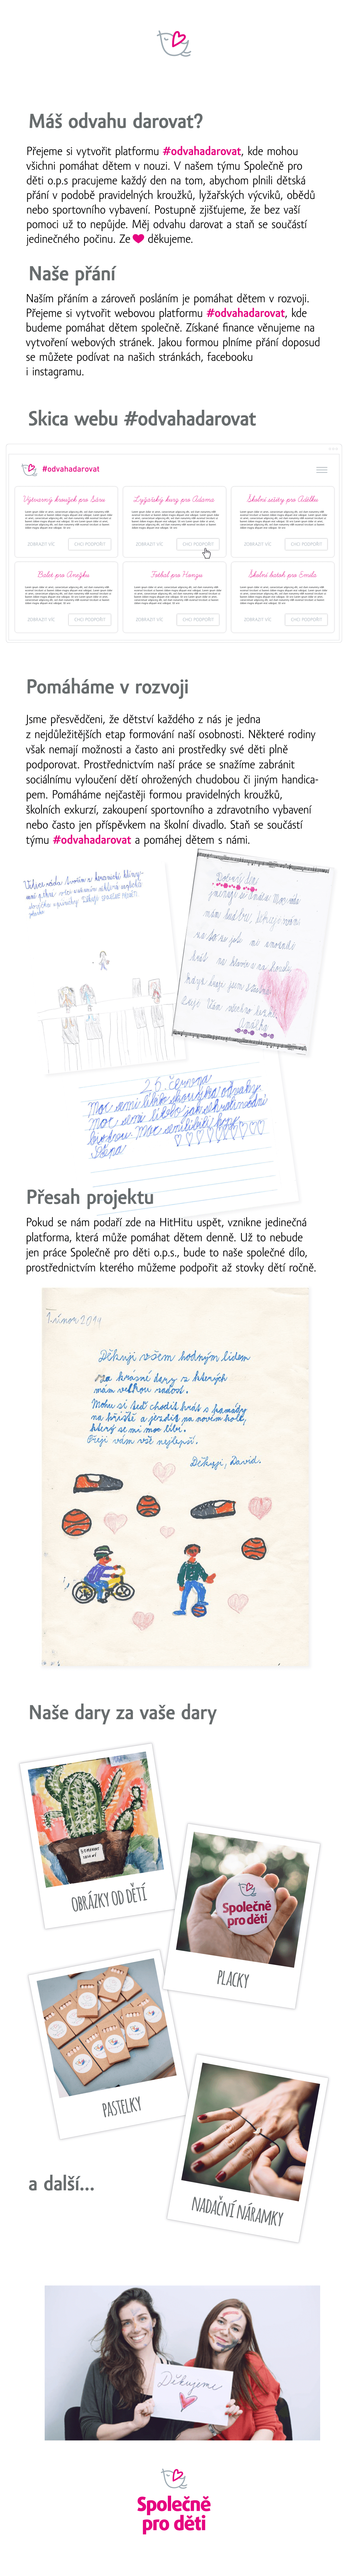 Máš odvahu darovat?
Přejeme si vytvořit platformu #odvahadarovat, kde mohou
všichni pomáhat dětem v nouzi. V našem týmu Společně pro
děti o.p.s pracujeme každý den na tom, abychom plnili dětská
přání v podobě pravidelných kroužků, lyžařských výcviků, obědů
nebo sportovního vybavení. Postupně zjišťujeme, že bez vaší
pomoci už to nepůjde. Měj odvahu darovat a staň se součástí
jedinečného počinu. Ze ♥ děkujeme.
Naše přání
Naším přáním a zároveň posláním je pomáhat dětem v rozvoji.
Přejeme si vytvořit webovou platformu #odvahadarovat, kde
budeme pomáhat dětem společně. Získané finance věnujeme na
vytvoření webových stránek. Jakou formou plníme přání doposud
se můžete podívat na našich stránkách, facebooku
i instagramu.
Skica webu #odvahadarovat
#odvahadarovat
Výtvarný kroužek pro Sáru
Lyžařský kurz pro Adama
Školní sešity pro Adélku
ZOBRAZIT VÍC CHCI PODPOŘIT
ZOBRAZIT VÍC CHCI PODPOŘIT
ZOBRAZIT VÍC CHCI PODPOŘIT
Balet pro Anežku
Fotbal pro Honzu
Školní batoh pro Emila
ZOBRAZIT VÍC CHCI PODPOŘIT
ZOBRAZIT VÍC CHCI PODPOŘIT
ZOBRAZIT VÍC CHCI PODPOŘIT
Pomáháme v rozvoji
Jsme přesvědčeni, že dětství každého z nás je jedna
z nejdůležitějších etap formování naší osobnosti. Některé rodiny
však nemají možnosti a často ani prostředky své děti plně
podporovat. Prostřednictvím naší práce se snažíme zabránit
sociálnímu vyloučení dětí ohrožených chudobou či jiným handica-
pem. Pomáháme nejčastěji formou pravidelných kroužků,
školních exkurzí, zakoupení sportovního a zdravotního vybavení
nebo často jen příspěvkem na školní divadlo. Staň se součástí
týmu #odvahadarovat a pomáhej dětem s námi.
Dobrý den
26. června
Moc se mi líbilo
Štěpán
Přesah projektu
Pokud se nám podaří zde na HitHitu uspět, vznikne jedinečná
platforma, která může pomáhat dětem denně. Už to nebude
jen práce Společně pro děti o.p.s., bude to naše společné dílo,
prostřednictvím kterého můžeme podpořit až stovky dětí ročně.
Děkuji všem hodným lidem
za krásné dary z kterých
mám velkou radost.
Mohu si teď chodit hrát s kamády
na hřiště a jezdit na novém kole,
který se mi moc líbí.
Přeji vám vše nejlepší.
Děkuji, David.
Naše dary za vaše dary
OBRÁZKY OD DĚTÍ
Společně
pro děti
PLACKY
PASTELKY
NADAČNÍ NÁRAMKY
a další...
Děkujeme
Společně
pro děti